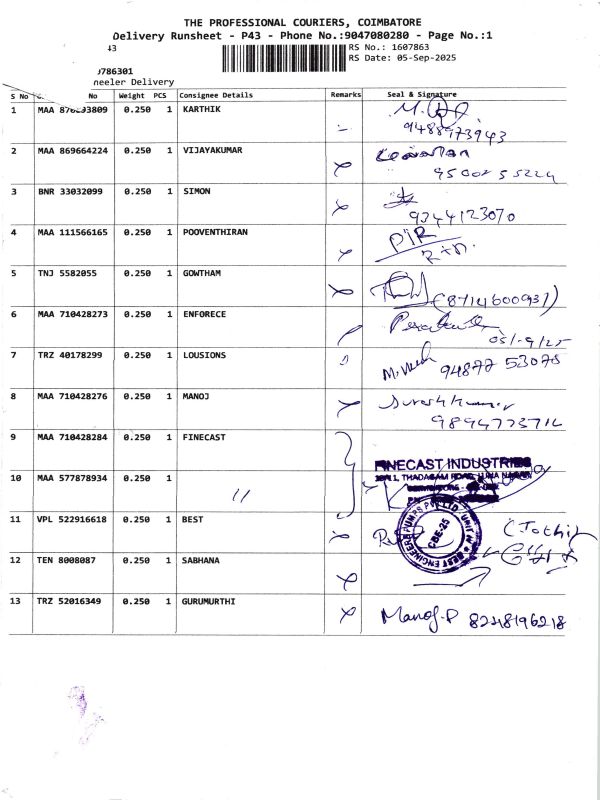 THE PROFESSIONAL COURIERS, COIMBATORE
Delivery Runsheet - P43 - Phone No.:9047080280 - Page No.:1
43
RS No.: 1607863
RS Date: 05-Sep-2025
0786301
neeler Delivery
S No No Weight PCS Consignee Details Remarks Seal & Signature
1 MAA 0.250 1 KARTHIK
9488973943
2 MAA 869664224 0.250 1 VIJAYAKUMAR
3 BNR 33032099 0.250 1 SIMON
9344123070
4 MAA 111566165 0.250 1 POOVENTHIRAN
5 TNJ 5582055 0.250 1 GOWTHAM
(8714600937)
6 MAA 710428273 0.250 1 ENFORECE
05/-9/25
7 TRZ 40178299 0.250 1 LOUSIONS
94877 53078
8 MAA 710428276 0.250 1 MANOJ
Sureshkumar
9894773714
9 MAA 710428284 0.250 1 FINECAST
FINECAST INDUSTRIES
10 MAA 577878934 0.250 1
11
11 VPL 522916618 0.250 1 BEST
BEST ENGINEERS PUMPS PVT LTD UNIT IV
CBE-25
(Jothi)
12 TEN 8008087 0.250 1 SABHANA
13 TRZ 52016349 0.250 1 GURUMURTHI
Manoj.P 8248196218